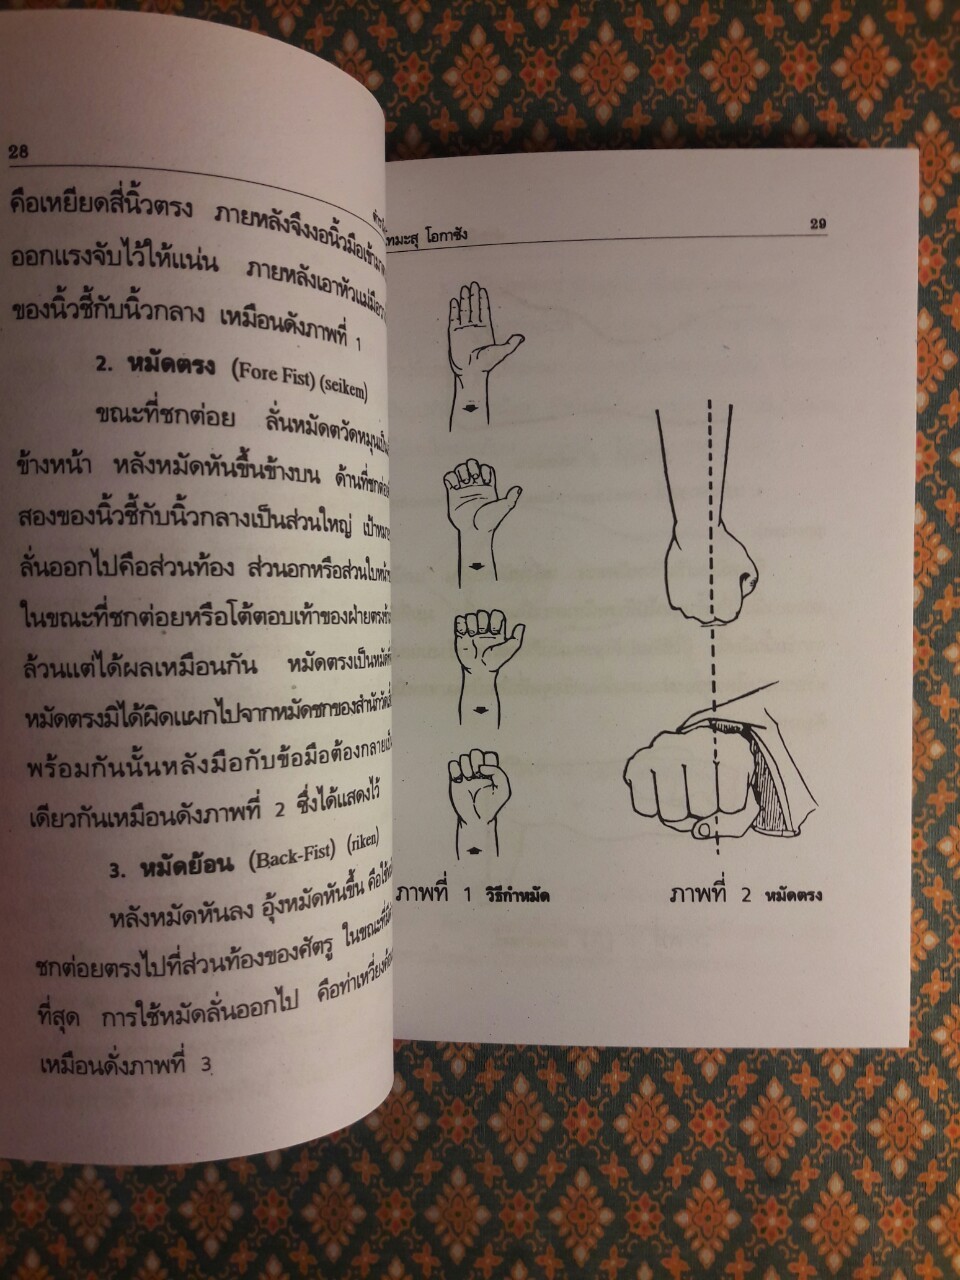 28
คือเหยียดสี่นิ้วตรง ภายหลังจึงงอนิ้วมือเข้ามา
ออกแรงจับไว้ให้แน่น ภายหลังเอาหัวแม่มือ
ของนิ้วชี้กับนิ้วกลาง เหมือนดังภาพที่ 1
2. หมัดตรง (Fore Fist) (seikem)
ขณะที่ชกต่อย ลั่นหมัดตวัดหมุน
ข้างหน้า หลังหมัดหันขึ้นข้างบน ด้านที่ชกต่อย
สองของนิ้วชี้กับนิ้วกลางเป็นส่วนใหญ่
ลั่นออกไปคือส่วนท้อง ส่วนอกหรือส่วนใบหน้า
ในขณะที่ชกต่อยหรือโต้ตอบเท้าของฝ่ายตรงข้าม
ล้วนแต่ได้ผลเหมือนกัน หมัดตรงเป็น
หมัดตรงมิได้ผิดแผกไปจากหมัดชกของสำนัก
พร้อมกันนั้นหลังมือกับข้อมือต้องกลาย
เดียวกันเหมือนดังภาพที่ 2 ซึ่งได้แสดงไว้
3. หมัดย้อน (Back-Fist) (riken)
หลังหมัดหันลง อุ้งหมัดหันขึ้น คือใช้
ชกต่อยตรงไปที่ส่วนท้องของศัตรู ในขณะที่
ที่สุด การใช้หมัดลั่นออกไป คือท่าเหวี่ยง
เหมือนดั่งภาพที่ 3
ทมะสุ โอกาซัง 29
ภาพที่ 1 วิธีกำหมัด
ภาพที่ 2 หมัดตรง